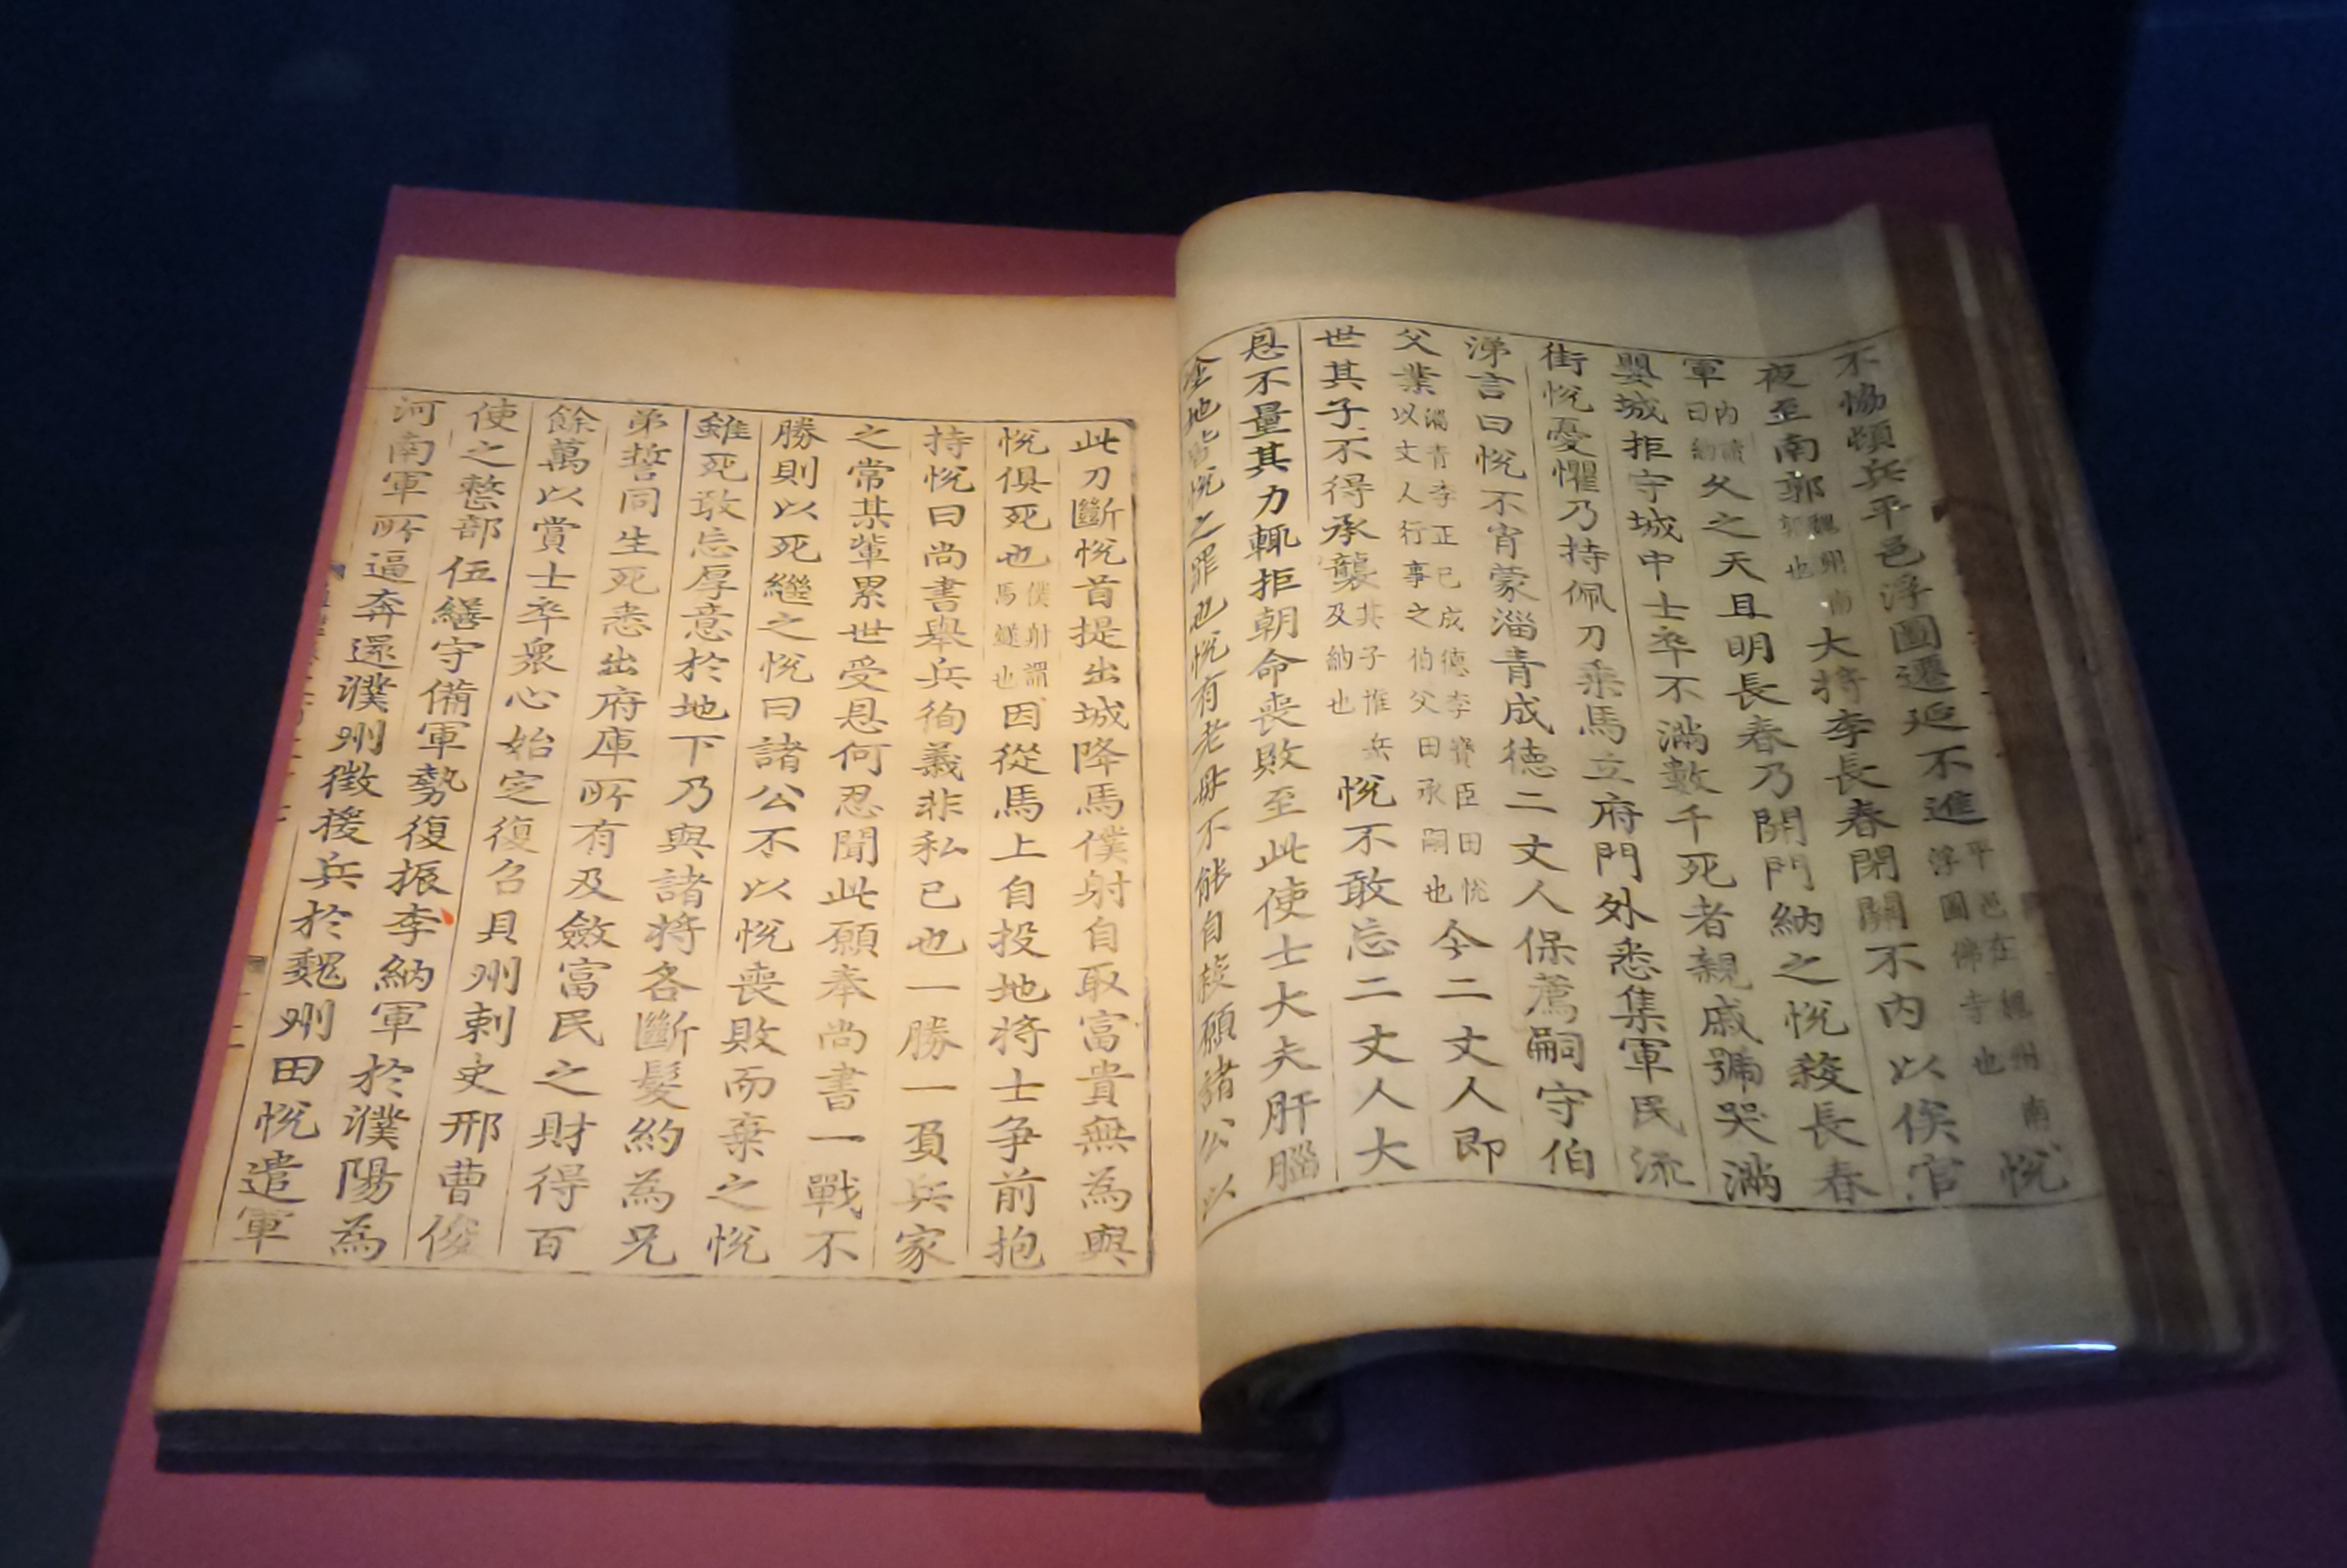 不協頓兵平邑浮圖遷延不進平邑在魏州南浮圖佛寺也悅
夜至南郭魏州南郭也大將李長春閉關不內以俟官
軍內讀曰納父之天且明長春乃開門納之悅殺長春
嬰城拒守城中士卒不滿數千死者親戚號哭滿
街悅憂懼乃持佩刀乘馬立府門外悉集軍民流
涕言曰悅不宵蒙淄青成德二丈人保薦嗣守伯
父業淄青李正已成德李寶臣田悅以丈人行事之伯父田承嗣也今二丈人即
世其子不得承襲其子惟岳及納也悅不敢忘二丈人大
恩不量其力輒拒朝命喪敗至此使士大夫肝腦
塗地皆悅之罪也悅有老母不能自殺願諸公以
此刀斷悅首提出城降馬僕射自取富貴無為與
悅俱死也僕射謂馬燧也因從馬上自投地將士爭前抱
持悅曰尚書舉兵徇義非私已也一勝一負兵家
之常某輩累世受恩何忍聞此願奉尚書一戰不
勝則以死繼之悅曰諸公不以悅喪敗而棄之悅
雖死敢忘厚意於地下乃與諸將各斷髮約為兄
弟誓同生死悉出府庫所有及斂富民之財得百
餘萬以賞士卒衆心始定復召貝州刺史邢曹俊
使之整部伍繕守備軍勢復振李納軍於濮陽為
河南軍所逼奔還濮州徵援兵於魏州田悅遣軍